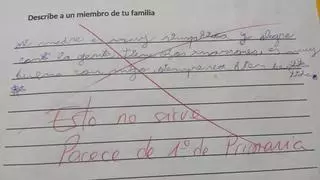 Describe a un miembro de tu familia
Mi madre es muy simpática y alegre
con la gente, tiene ojos marrones, es muy
buena con migo, siempre
Esto no sirve
Parece de 1º de Primaria